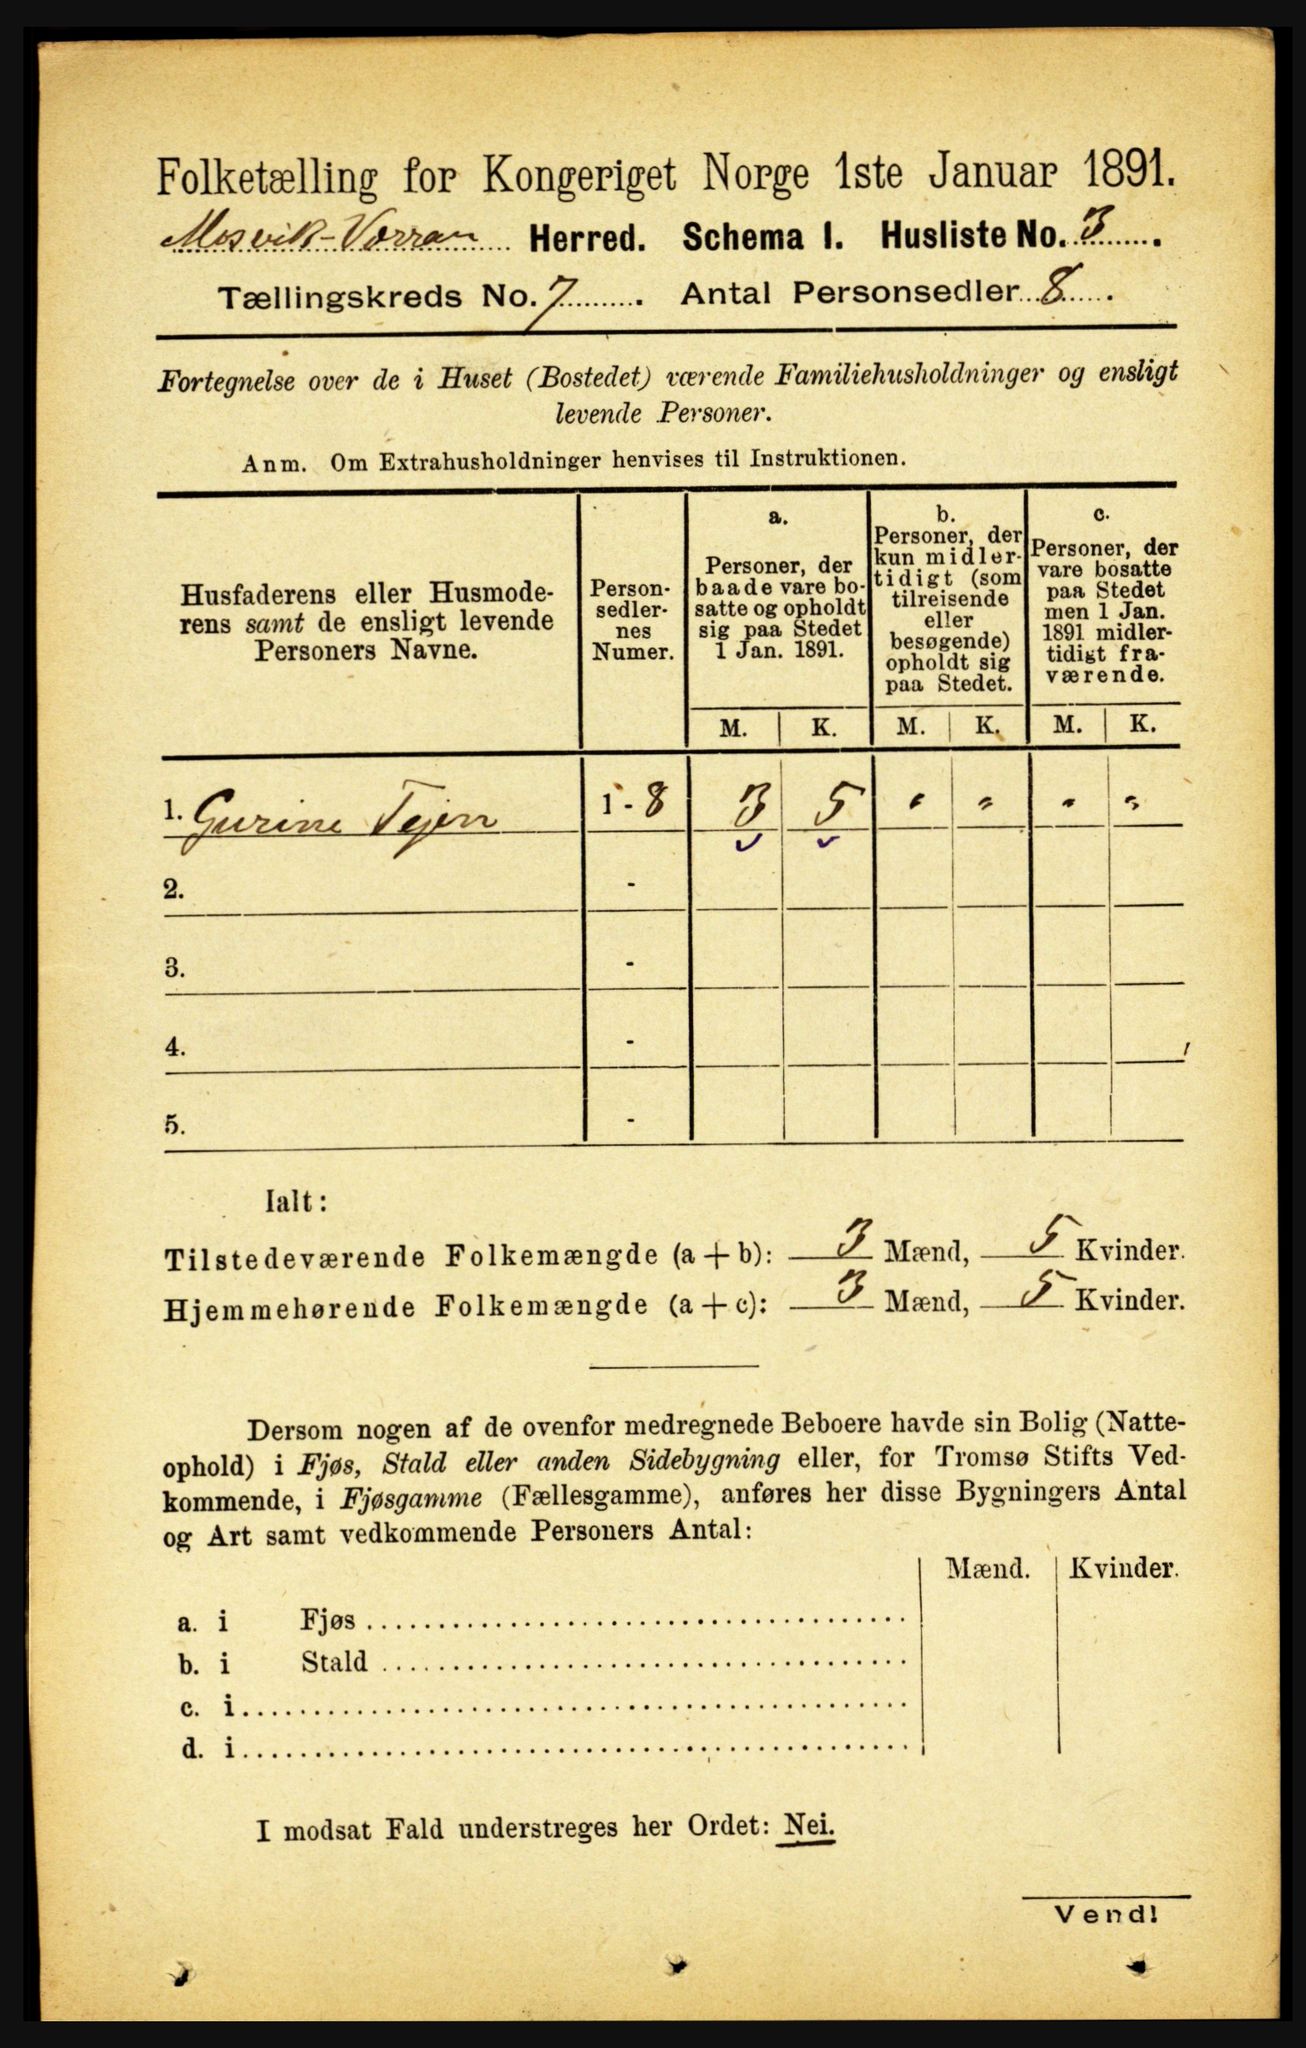 Folketælling for Kongeriget Norge 1ste Januar 1891.
Mosvik-Verran Herred. Schema I. Husliste No. 3.
Tællingskreds No. 7. Antal Personsedler 8.
Fortegnelse over de i Huset (Bostedet) værende Familiehusholdninger og ensligt
levende Personer.
Anm. Om Extrahusholdninger henvises til Instruktionen.
Husfaderens eller Husmode-
rens samt de ensligt levende
Personers Navne.
Person-
sedler-
nes
Numer.
a.
Personer, der
baade vare bo-
satte og opholdt
sig paa Stedet
1 Jan. 1891.
b.
Personer, der
kun midler-
tidigt (som
tilreisende
eller
besøgende)
opholdt sig
paa Stedet.
c.
Personer, der
vare bosatte
paa Stedet
men 1 Jan.
1891 midler-
tidigt fra-
værende.
M. K. M. K. M. K.
1. Gurine Tejen 1 - 8 3 5 " " " "
2. -
3. -
4. -
5. -
Ialt:
Tilstedeværende Folkemængde (a + b): 3 Mænd, 5 Kvinder.
Hjemmehørende Folkemængde (a + c): 3 Mænd, 5 Kvinder.
Dersom nogen af de ovenfor medregnede Beboere havde sin Bolig (Natte-
ophold) i Fjøs, Stald eller anden Sidebygning eller, for Tromsø Stifts Ved-
kommende, i Fjøsgamme (Fællesgamme), anføres her disse Bygningers Antal
og Art samt vedkommende Personers Antal:
Mænd. Kvinder.
a. i Fjøs
b. i Stald
c. i
d. i
I modsat Fald understreges her Ordet: Nei.
Vend!